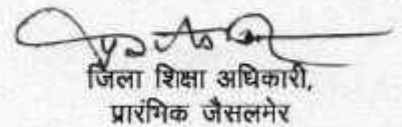 जिला शिक्षा अधिकारी,
प्रारंगिक जैसलमेर